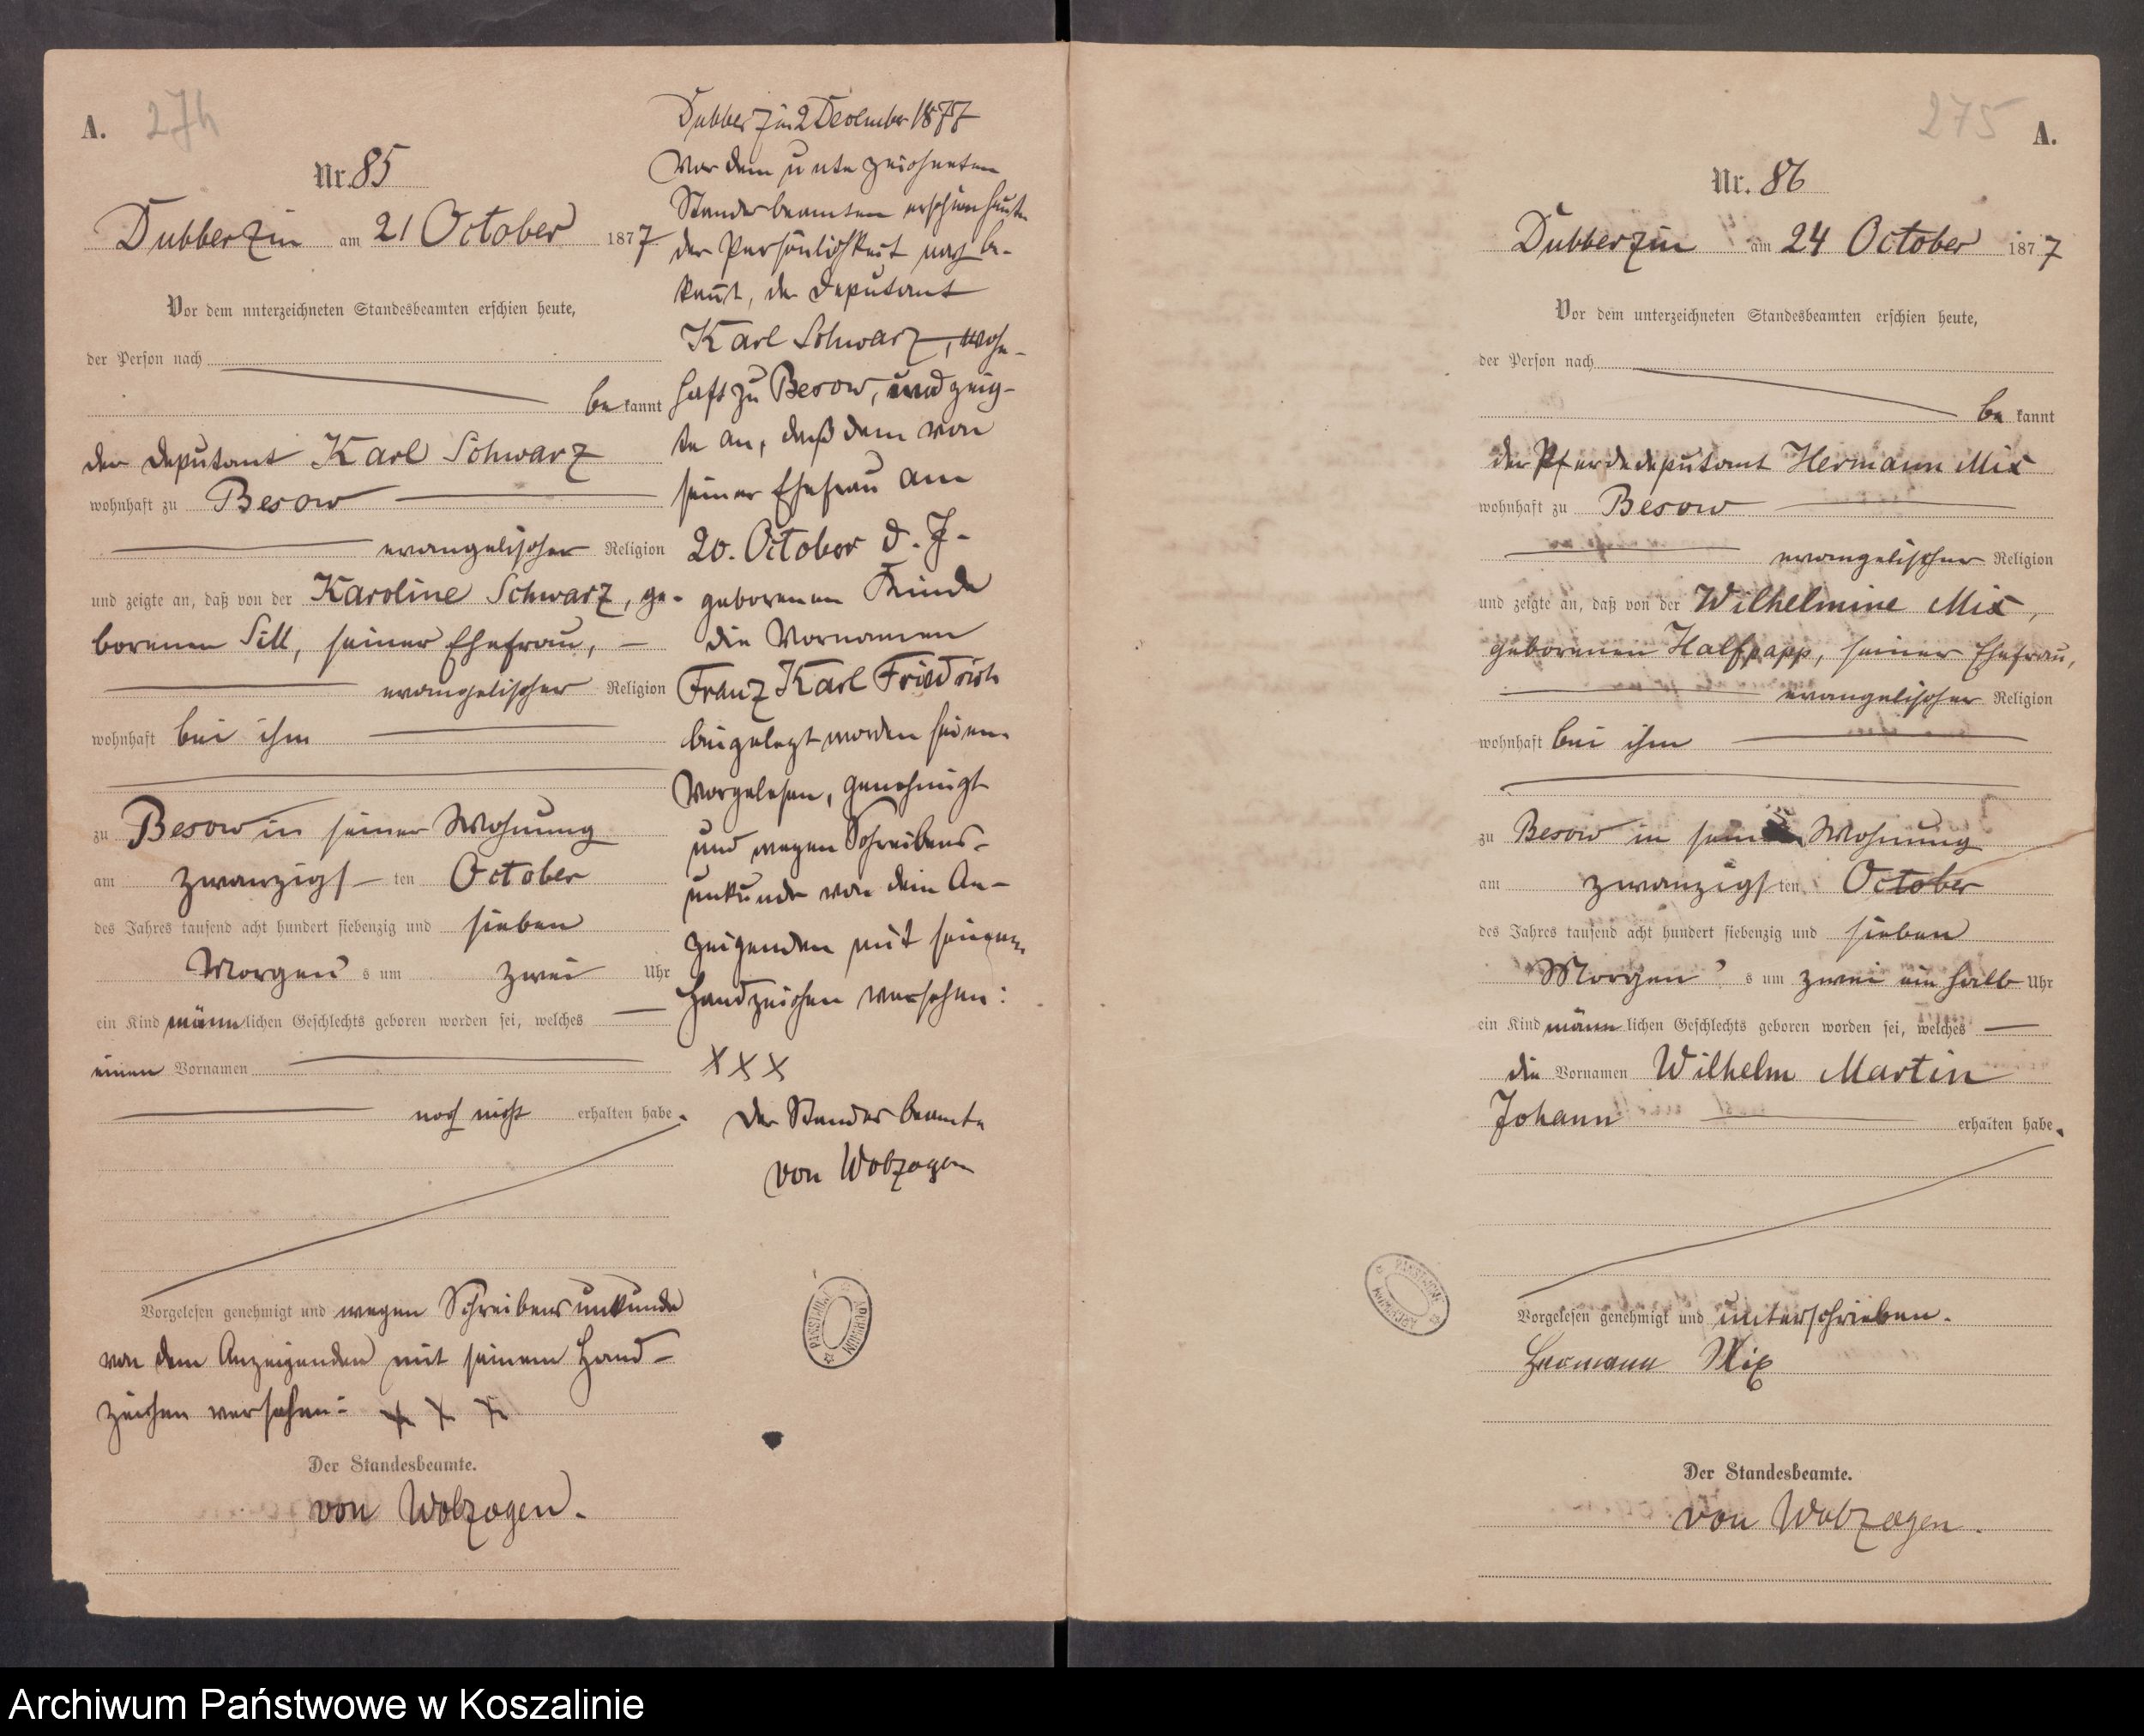 A. 274
Nr. 85
Dubberzin am 21 October 1877
Vor dem unterzeichneten Standesbeamten erschien heute,
der Person nach
be kannt
der Deputant Karl Schwarz
wohnhaft zu Besow
evangelischer Religion
und zeigte an, daß von der Karoline Schwarz, ge-
borenen Sill, seiner Ehefrau,
evangelischer Religion
wohnhaft bei ihm
zu Besow in seiner Wohnung
am zwanzigsten October
des Jahres tausend acht hundert siebenzig und sieben
Morgens um zwei Uhr
ein Kind männlichen Geschlechts geboren worden sei, welches
einen Vornamen
noch nicht erhalten habe.
Vorgelesen genehmigt und wegen Schreibensunkunde
von dem Anzeigenden mit seinem Hand-
zeichen versehen: x x x
Der Standesbeamte.
von Wolzogen.
Dubberzin 2 December 1877
Vor dem unterzeichneten
Standesbeamten erschien heute
der Persönlichkeit nach be-
kannt, der Deputant
Karl Schwarz, wohn-
haft zu Besow, und zeig-
te an, daß dem von
seiner Ehefrau am
20. October d. J.
geborenen Kinde
die Vornamen
Franz Karl Friedrich
beigelegt worden seien.
Vorgelesen, genehmigt
und wegen Schreibens-
unkunde von dem An-
zeigenden mit seinem
Handzeichen versehen:
x x x
Der Standesbeamte
von Wolzogen
ARCHIWUM PAŃSTWOWE
275 A.
Nr. 86
Dubberzin am 24 October 1877
Vor dem unterzeichneten Standesbeamten erschien heute,
der Person nach
be kannt
der Pferdedeputant Hermann Mix
wohnhaft zu Besow
evangelischer Religion
und zeigte an, daß von der Wilhelmine Mix,
geborenen Halfpapp, seiner Ehefrau,
evangelischer Religion
wohnhaft bei ihm
zu Besow in seiner Wohnung
am zwanzigsten October
des Jahres tausend acht hundert siebenzig und sieben
Morgens um zwei ein halb Uhr
ein Kind männlichen Geschlechts geboren worden sei, welches
die Vornamen Wilhelm Martin
Johann erhalten habe.
Vorgelesen genehmigt und unterschrieben.
Hermann Mix
Der Standesbeamte.
von Wolzogen.
ARCHIWUM PAŃSTWOWE
Archiwum Państwowe w Koszalinie